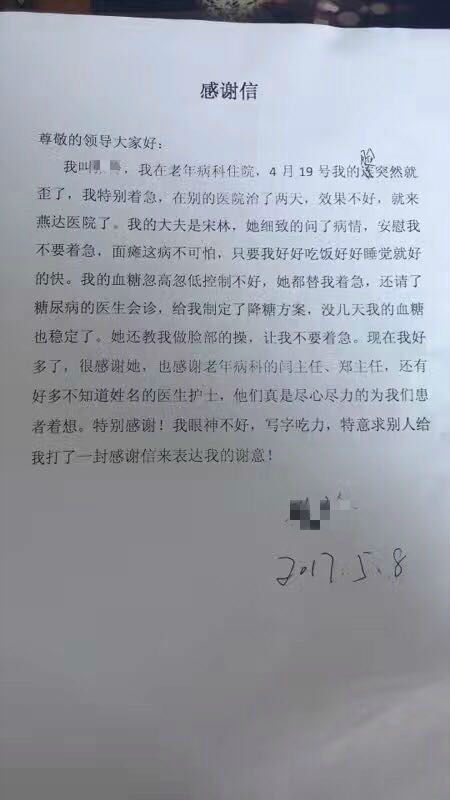 感谢信
尊敬的领导大家好：
我叫，我在老年病科住院，4月19号我的脸突然就
歪了，我特别着急，在别的医院治了两天，效果不好，就来
燕达医院了。我的大夫是宋林，她细致的问了病情，安慰我
不要着急，面瘫这病不可怕，只要我好好吃饭好好睡觉就好
的快。我的血糖忽高忽低控制不好，她都替我着急，还请了
糖尿病的医生会诊，给我制定了降糖方案，没几天我的血糖
也稳定了。她还教我做脸部的操，让我不要着急。现在我好
多了，很感谢她，也感谢老年病科的闫主任、郑主任，还有
好多不知道姓名的医生护士，他们真是尽心尽力的为我们患
者着想。特别感谢！我眼神不好，写字吃力，特意求别人给
我打了一封感谢信来表达我的谢意！
2017.5.8